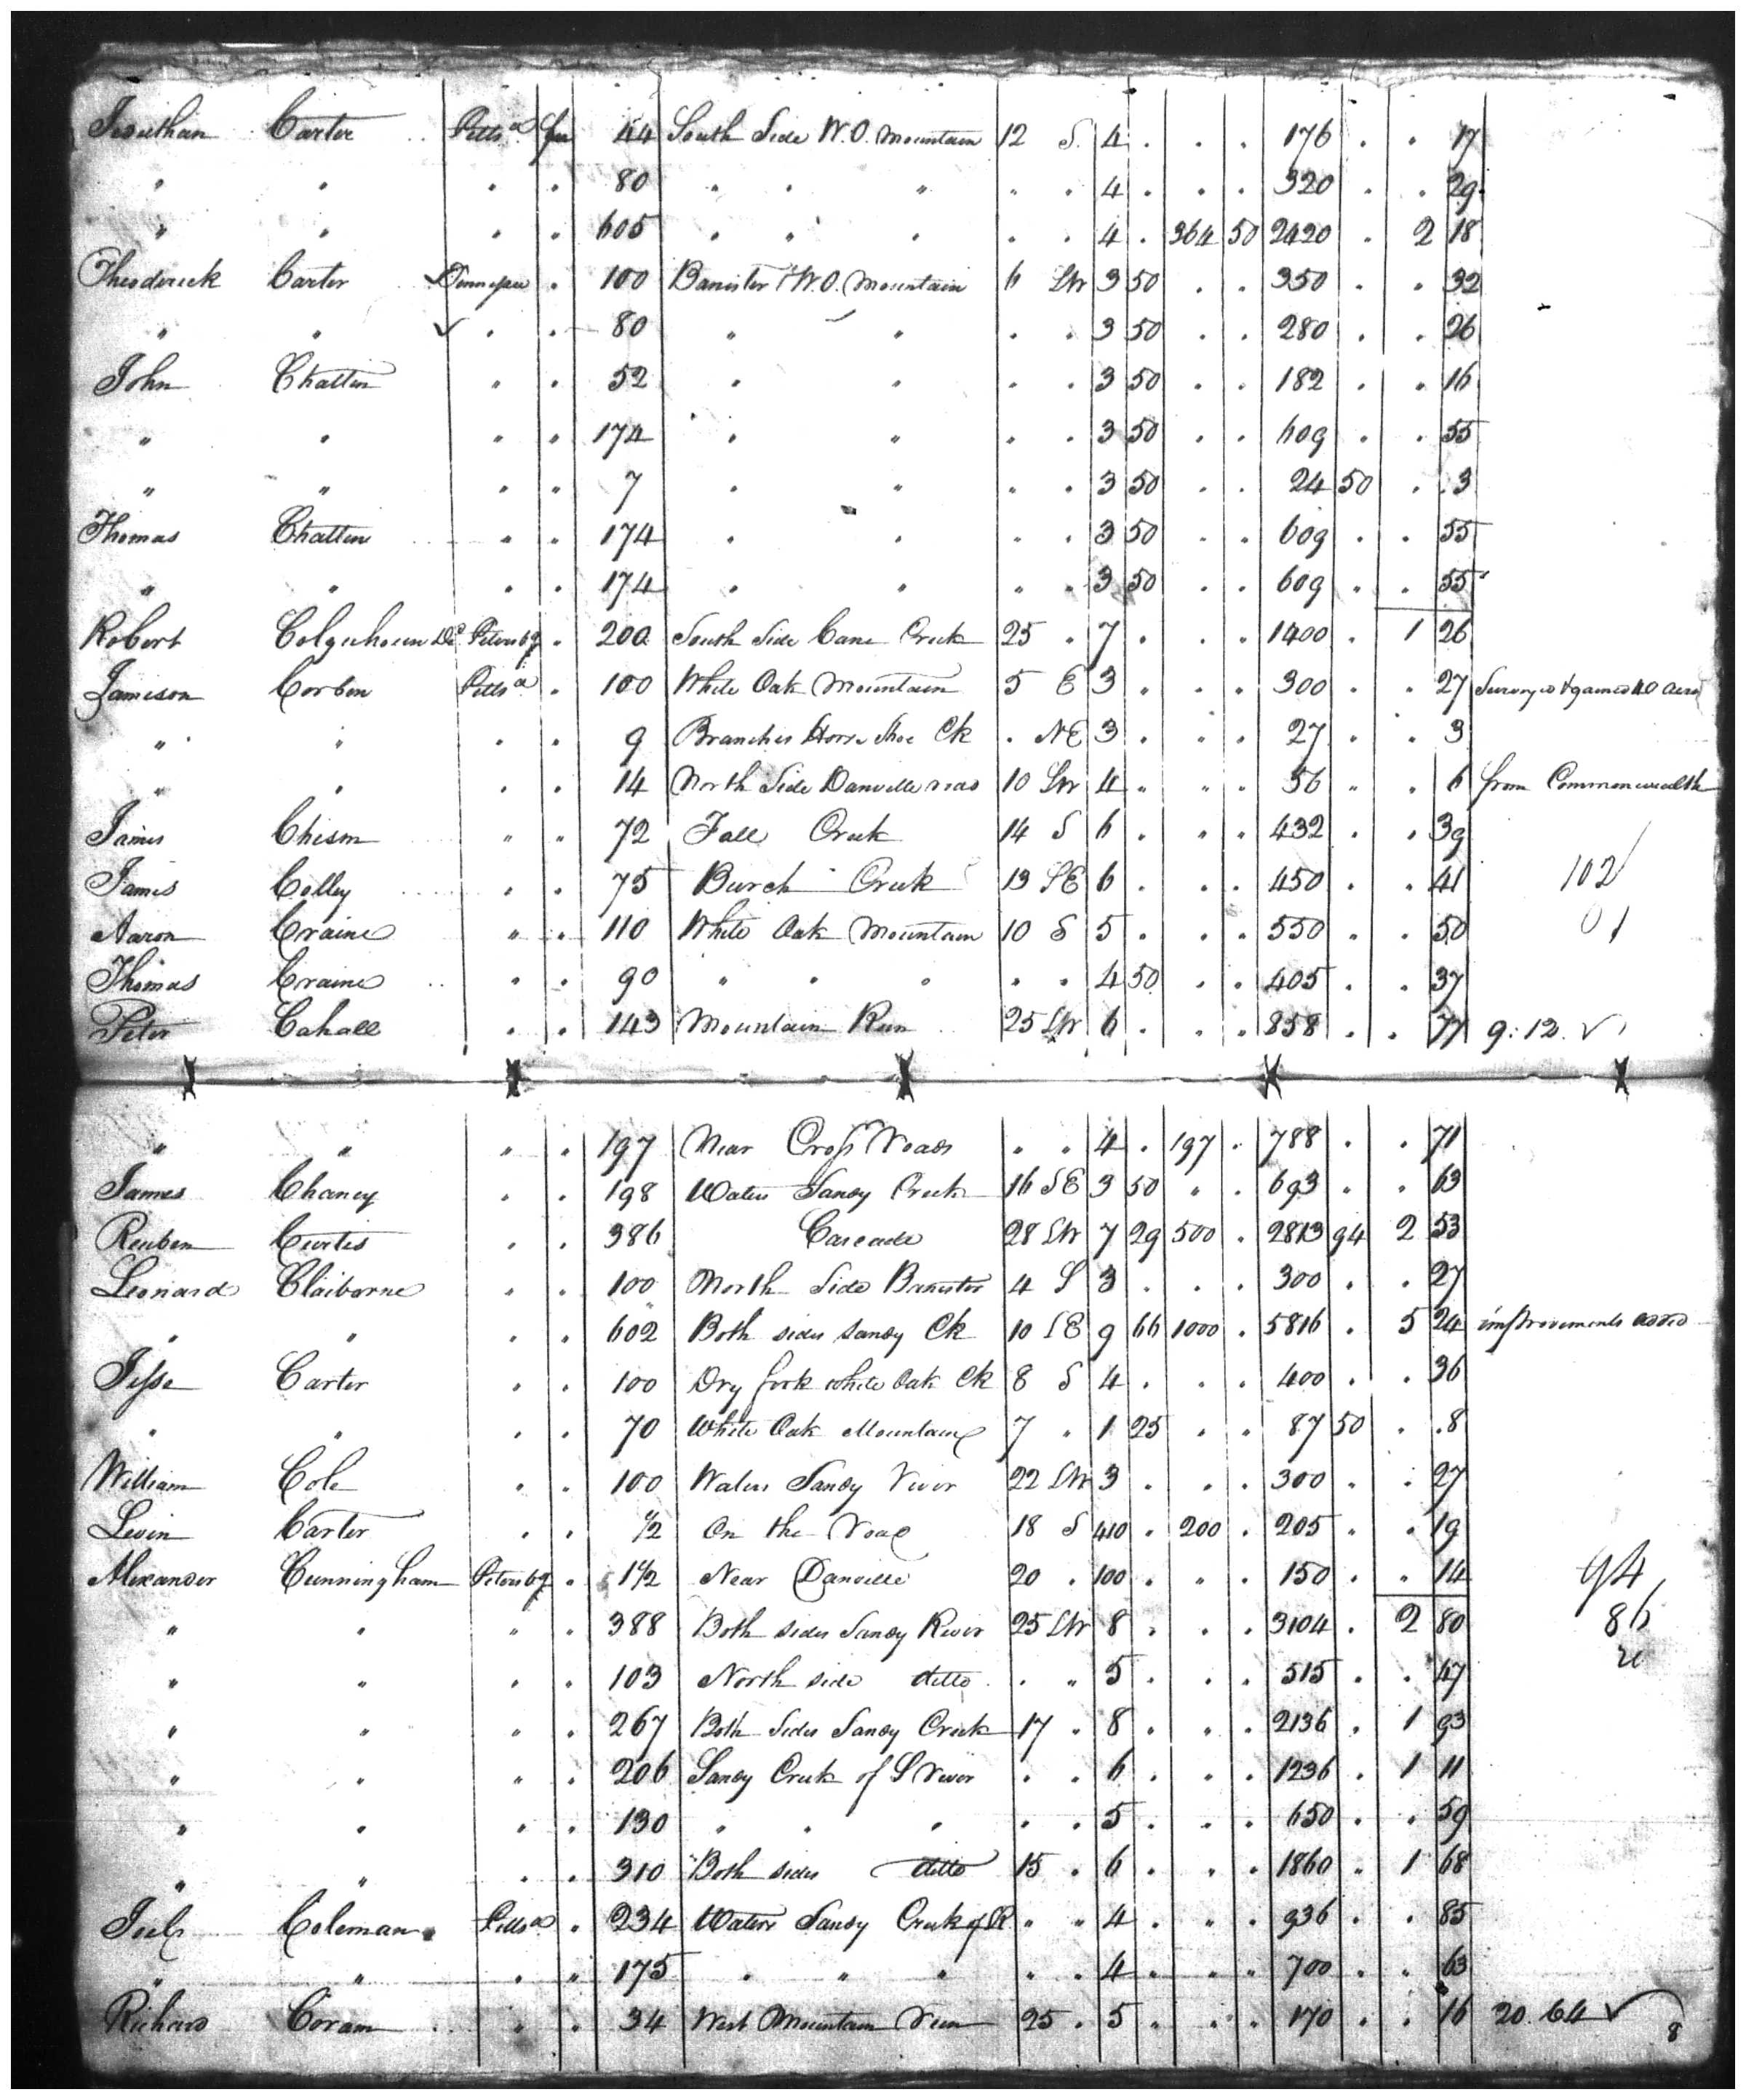 Jeduthan Carter Pitts.a fee 44 South Side W. O. Mountain 12 S. 4 . . . 176 . . 17
" " " . 80 " " " " . 4 . . . 320 . . 29
" " " . 605 " " " " . 4 . 364 50 2420 . 2 18
Theoderick Carter . 100 Banister W. O. Mountain 6 SW 3 50 . . 350 . . 32
" " " . 80 " " . . 3 50 . . 280 . . 26
John Chattin " . 52 " " . . 3 50 . . 182 . . 16
" " " " 174 " " . . 3 50 . . 609 . . 55
" " " " 7 " " . . 3 50 . . 24 50 . 3
Thomas Chattin " . 174 " " . . 3 50 . . 609 . . 55
" " " . 174 " " . . 3 50 . . 609 . . 55
Robert Colquhoun Petersbg . 200 South Side Cane Creek 25 . 7 . . . 1400 . 1 26
Jamison Corbin Pitts.a . 100 White Oak Mountain 5 E 3 . . . 300 . . 27 Surveyed & gained 40 acres
" " " . 9 Branches Horse Shoe Ck . NE 3 . . . 27 . . 3
" " " . 14 North Side Danville road 10 SW 4 . . . 56 . . 6 from Commonwealth
James Chism " . 72 Fall Creek 14 S 6 . . . 432 . . 39
James Colley " . 75 Burch Creek 13 SE 6 . . . 450 . . 41 102
Aaron Craine " . 110 White Oak Mountain 10 S 5 . . . 550 . . 50
Thomas Craine " . 90 " " " . . 4 50 . . 405 . . 37
Peter Cahall " . 143 Mountain Run 25 SW 6 . . . 858 . . 77 9:12. ✓
" " " . 197 Near Cross Roads . . 4 . 197 . 788 . . 71
James Chaney " . 198 Waters Sandy Creek 16 SE 3 50 . . 693 . . 63
Reuben Curtis " . 386 Cascade 28 SW 7 29 500 . 2813 94 2 53
Leonard Claiborne " . 100 North Side Banister 4 S 3 . . . 300 . . 27
" " " . 602 Both sides Sandy Ck 10 SE 9 66 1000 . 5816 . 5 24 improvements added
Jesse Carter " . 100 Dry fork white Oak Ck 8 S 4 . . . 400 . . 36
" " " . 70 White Oak Mountain 7 " 1 25 . . 87 50 . 8
William Cole " . 100 Waters Sandy River 22 SW 3 . . . 300 . . 27
Levin Carter " . 1/2 On the Road 18 S 410 . 200 . 205 . . 19
Alexander Cunningham Petersbg . 1 1/2 Near Danville 20 . 100 . . . 150 . . 14 94
" " " . 388 Both sides Sandy River 25 SW 8 . . . 3104 . 2 80 86
" " " . 103 North side ditto . " 5 . . . 515 . . 47
" " " . 267 Both Sides Sandy Creek 17 . 8 . . . 2136 . 1 93
" " " . 206 Sandy Creek of S River . . 6 . . . 1236 . 1 11
" " " . 130 " " " . . 5 . . . 650 . . 59
" " " . 310 Both sides ditto 15 . 6 . . . 1860 . 1 68
Joel Coleman Pitts.a . 234 Waters Sandy Creek of R. " " 4 . . . 936 . . 85
" " " " 175 " " " . . 4 . . . 700 . . 63
Richard Coram " . 34 West Mountain Run 25 . 5 . . . 170 . . 16 20.64 ✓
8